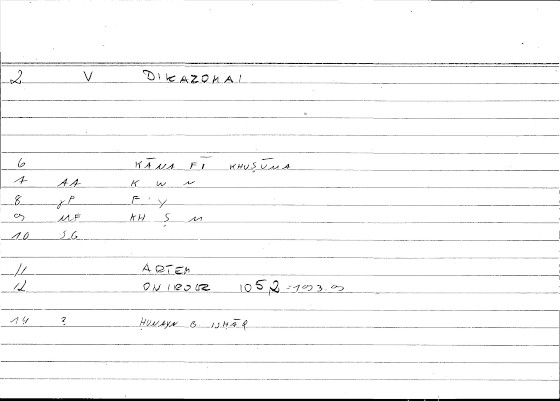 2 V DIKAZOMAI
6 KĀNA FĪ KHUṢŪMA
7 AA K W N
8 F Y
9 KH Ṣ M
10 SG
11 ARTEM
12 ONIROCR 105,2 = 193.9
14 ? ḤUNAYN B ISḤĀQ